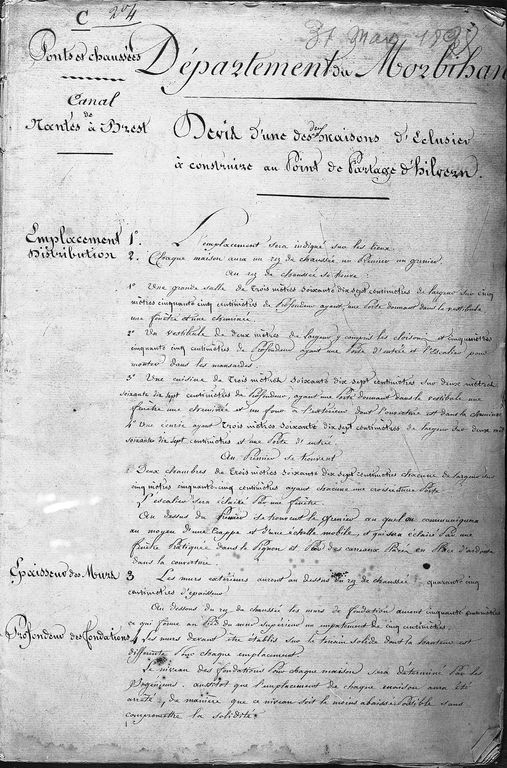 C 204
31 Mars 18
Ponts et chaussées
Département du Morbihan
Canal
de
Nantes à Brest
Devis d'une des maisons d'Eclusier
à construire au Point de Partage d'Hilvern.
Emplacement 1°. L'emplacement sera indiqué sur les lieux
Distribution 2. Chaque maison aura un rez de chaussée un Premier un grenier.
Au rez de chaussée se trouve
1° Une grande salle de trois mètres soixante dix sept centimètres de largeur sur cinq
mètres cinquante cinq centimètres de profondeur ayant une Porte donnant dans le vestibule
une fenêtre et une cheminée
2° Un vestibule de deux mètres de largeur, compris les cloisons et cinq mètres
cinquante cinq centimètres de Profondeur ayant une Porte d'entrée et l'Escalier pour
monter dans les mansardes
3° Une cuisine de Trois mètres soixante dix sept centimètres sur deux mètres
soixante dix sept centimètres de profondeur, ayant une Porte donnant dans le vestibule une
fenêtre une cheminée et un four à l'extérieur dont l'ouverture est dans la cheminée
4° Une ayant Trois mètres soixante dix sept centimètres de largeur sur deux mètres
soixante dix sept centimètres et une Porte d'entrée
Au Premier se trouvent
Deux chambres de Trois mètres soixante dix sept centimètres chacune de largeur sur
cinq mètres cinquante cinq centimètres ayant chacune une croisée et une Porte
L'escalier sera éclairé Par une fenêtre
Au dessus du Premier se trouvent le grenier au quel on communiquera
au moyen d'une trappe et d'une échelle mobile, et qui sera éclairé Par une
fenêtre Pratiquée dans le Pignon et Par des carreaux Placés en Place d'ardoise
dans la couverture
Epaisseur des Murs 3 Les murs extérieurs auront au dessus du rez de chaussée quarante cinq
centimètres d'épaisseur
Au dessous du rez de chaussée les murs de fondation auront cinquante centimètres
ce qui forme au Pied du mur supérieur un empatement de cinq centimètres.
Profondeur des fondations 4 Les murs devant être établis sur le terrain solide dont la hauteur est
différente Pour chaque emplacement
Le niveau des fondations Pour chaque maison sera déterminé Par les
Ingénieurs aussitot que l'emplacement de chaque maison aura été
arrêté, de manière que ce niveau soit le moins abaissé Possible sans
compromettre la solidité.